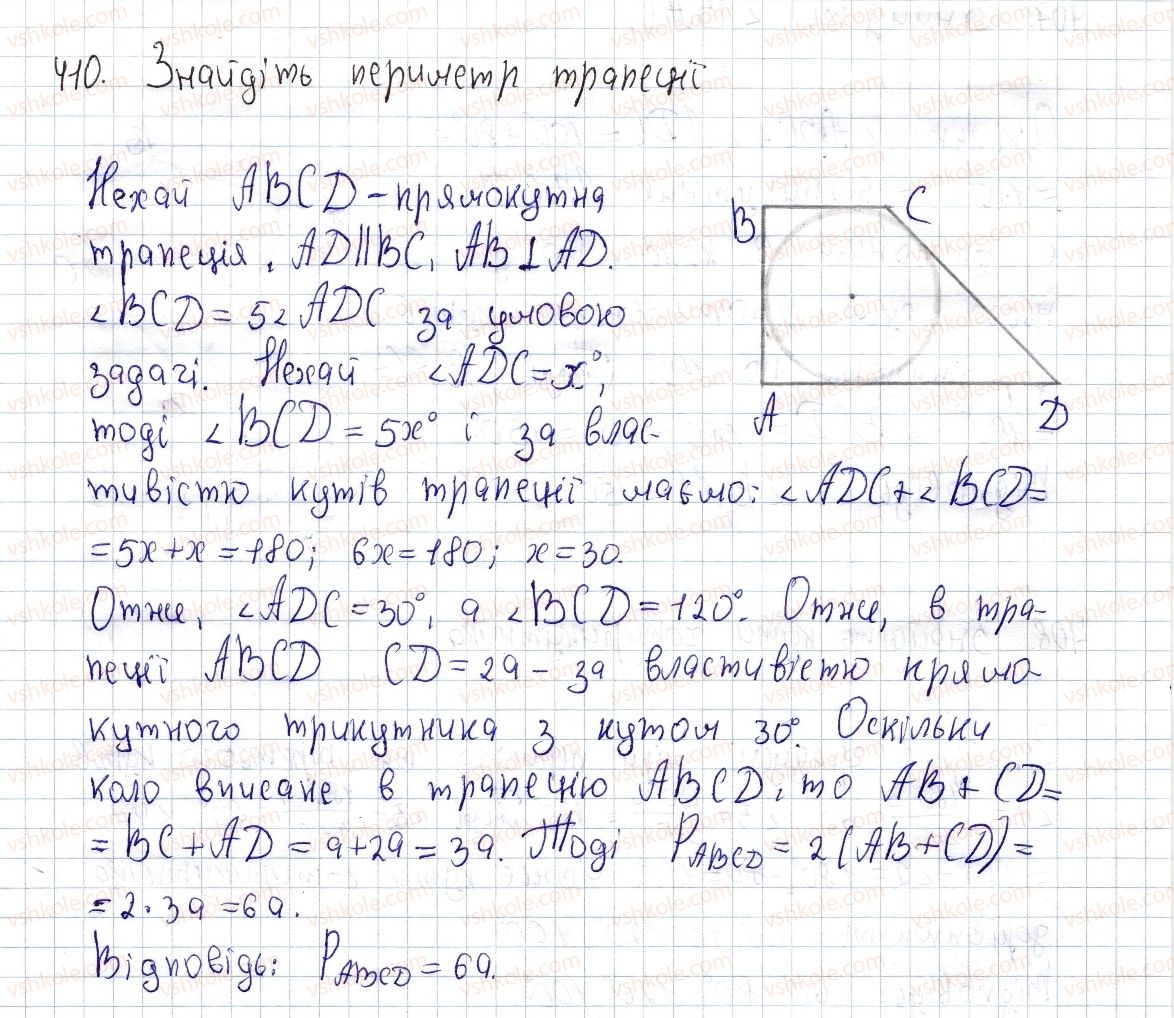 410. Знайдіть периметр трапеції
Нехай ABCD – прямокутна
трапеція, AD||BC, AB⊥AD.
∠BCD = 5∠ADC за умовою
задачі. Нехай ∠ADC = x°,
тоді ∠BCD = 5x° і за влас-
тивістю кутів трапеції маємо: ∠ADC + ∠BCD =
= 5x + x = 180; 6x = 180; x = 30.
Отже, ∠ADC = 30°, а ∠BCD = 120°. Отже, в тра-
пеції ABCD CD = 2a – за властивістю прямо-
кутного трикутника з кутом 30°. Оскільки
коло вписане в трапецію ABCD, то AB + CD =
= BC + AD = a + 2a = 3a. Тоді P_ABCD = 2(AB + CD) =
= 2 · 3a = 6a.
Відповідь: P_ABCD = 6a.
B
C
A
D
vshkole.com